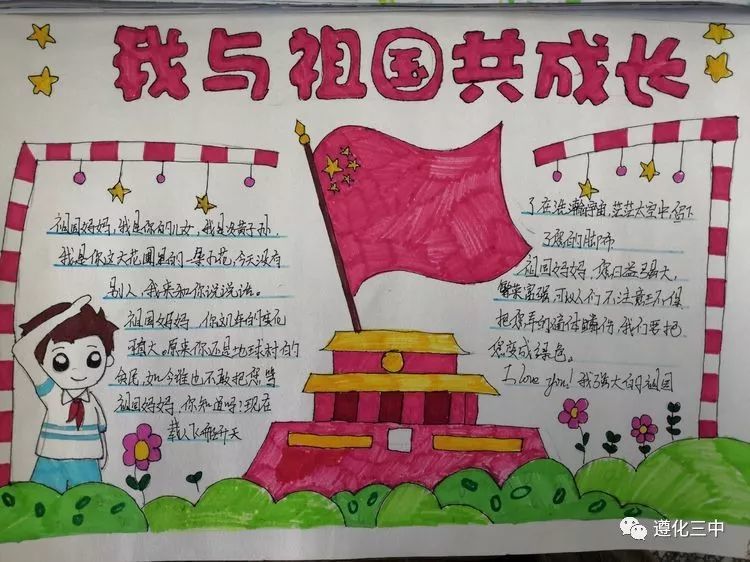 我与祖国共成长
祖国妈妈，我是你的儿女，我是炎黄子孙，
我是你这大花圃里的一朵小花，今天没有
别人，我来和你说说话。
祖国妈妈，你几年的变化
巨大。原来你还是地球村的
贫民，如今谁也不敢把您惹
祖国妈妈，你知道吗？现在
载人飞船升天
了在浩瀚宇宙，茫茫太空中留下
了您的脚印
祖国妈妈，您日益强大，
繁荣富强，可以人们不注意环保
把您弄的遍体鳞伤，我们要把
您变成绿色。
I love you! 我强大的祖国
遵化三中